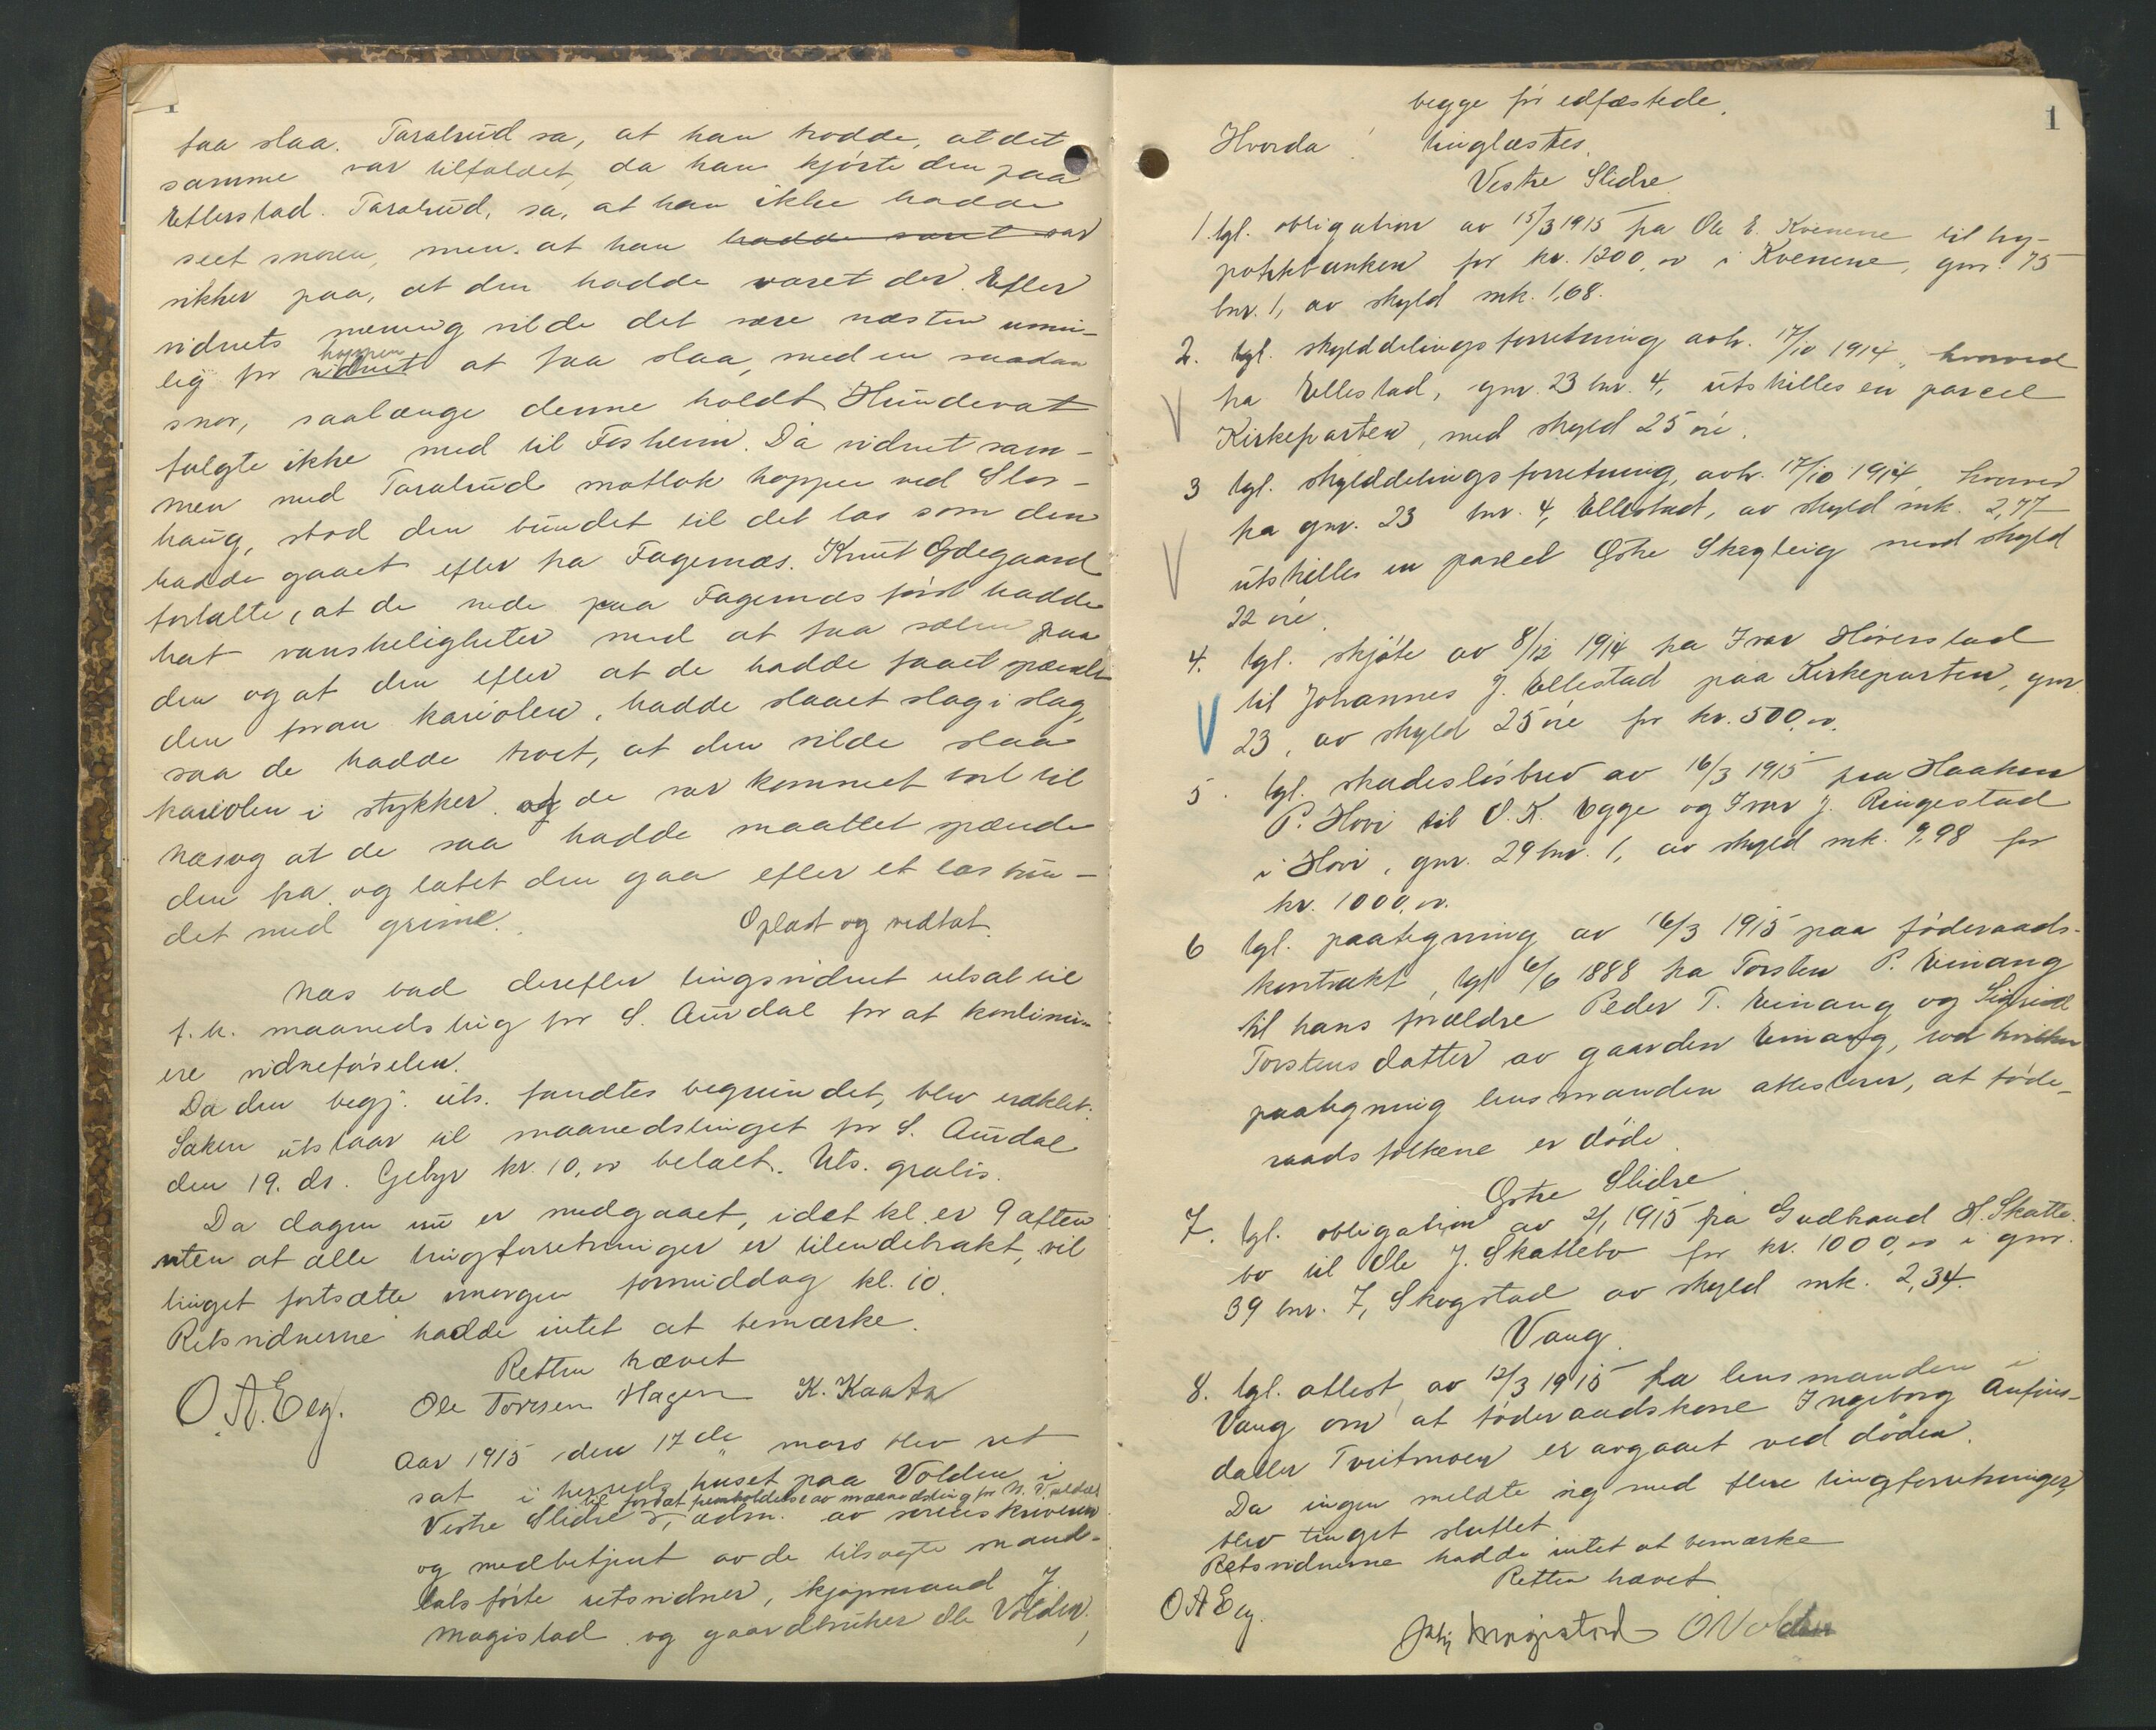 faa slaa. Taralrud sa, at han trodde, at det
samme var tilfældet, da han kjørte den paa
Ellestad. Taralrud, sa, at han ikke hadde
seet snoren, men. at han hadde været var
sikker paa, at den hadde været der. Efter
vidnets mening vilde det være næsten umu-
lig for vidnet hoppen at faa slaa, med en saadan
snor, saalænge denne holdt. Hundevat
fulgte ikke med til Fosheim. Da vidnet sam-
men med Taralrud mottok hoppen ved Slor-
haug, stod den bundet til det las som den
hadde gaaet efter fra Fagernæs. Knut Ødegaard
fortalte, at de nede paa Fagernæs først hadde
hat vanskeligheter med at faa sælen paa
den og at den efter at de hadde faaet spændt
den foran kariolen, hadde slaaet slag i slag,
saa de hadde troet, at den vilde slaa
kariolen i stykker og de var kommet bort til
Næs og at de saa hadde maattet spænde
den fra og latet den gaa efter et las bun-
det med grime. Oplæst og vedtat.
Næs bad derefter tingsvidnet utsat til
f. k. maanedsting for S. Aurdal for at kontinu-
ere vidneførselen.
Da den begj. uts. fandtes begrundet, blev eraklet:
Saken utstaar til maanedstinget for S. Aurdal
den 19. ds. Gebyr kr. 10,00 betalt. Uts. gratis.
Da dagen nu er medgaaet, idet kl. er 9 aften
uten at alle tingforretninger er tilendebrakt, vil
tinget fortsætte imorgen formiddag kl. 10.
Retsvidnerne hadde intet at bemærke.
Retten hævet
O. A. Eeg. Ole Toresen Hagen K. Kaata
Aar 1915 den 17de mars blev ret
sat i herredshuset paa Volden i
Vestre Slidre til fortsat avholdelse av maanedsting for N. Valdres, adm. av sorenskriveren
og medbetjent av de tilsagte mand-
talsførte retsvidner, kjøpmand J.
Magistad og gaardbruker Ole Volden,
1
begge før edfæstede.
Hvorda! tinglæstes.
Vestre Slidre.
1. tgl. obligation av 15/3 1915 fra Ole E. Kvenene til hy-
potekbanken for kr. 1200,00 i Kvenene, gnr. 75
bnr. 1, av skyld mk. 1,68.
2. tgl. skylddelingsforretning avh. 17/10 1914, hvorved
fra Ellestad, gnr. 23 bnr. 4, utskilles en parcel
Kirkeparten, med skyld 25 øre.
3 tgl. skylddelingsforretning, avh. 17/10 1914, hvorved
fra gnr. 23 bnr. 4, Ellestad, av skyld mk. 2,77
utskilles en parcel Østre Skogteig med skyld
22 øre.
4. tgl. skjøte av 8/12 1914 fra Ivar Høverstad
til Johannes J. Ellestad paa Kirkeparten, gnr.
23, av skyld 25 øre for kr. 500,00.
5. tgl. skadesløsbrev av 16/3 1915 fra Haaken
P. Hovi til O. K. Egge og Ivar J. Ringestad
i Hovi, gnr. 29 bnr. 1, av skyld mk. 9,98 for
kr. 1000,00.
6 tgl. paategning av 16/3 1915 paa føderaads-
kontrakt, tgl 6/6 1888 fra Torsten P. Einang
til hans forældre Peder T. Einang og Sigrid
Torstensdatter av gaarden Einang, ved hvilken
paategning lensmanden attesterer, at føde-
raadsfolkene er døde.
Østre Slidre
7. tgl. obligation av 2/1 1915 fra Gudbrand H. Skatte-
bo til Ole J. Skattebo for kr. 1000,00 i gnr.
39 bnr. 7, Skogstad av skyld mk. 2,34.
Vang.
8. tgl. attest av 12/3 1915 fra lensmanden i
Vang om at føderaadskone Ingeborg Anfins-
datter Tveitmoen er avgaaet ved døden.
Da ingen meldte sig med flere tingforretninger,
blev tinget sluttet.
Retsvidnerne hadde intet at bemærke
Retten hævet
O A Eeg.
Johs Magistad O Volden